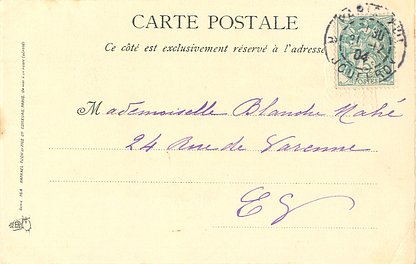 CARTE POSTALE
Ce côté est exclusivement réservé à l'adresse
30
04
Mademoiselle Blanche Mahé
24 Rue de Varenne
E